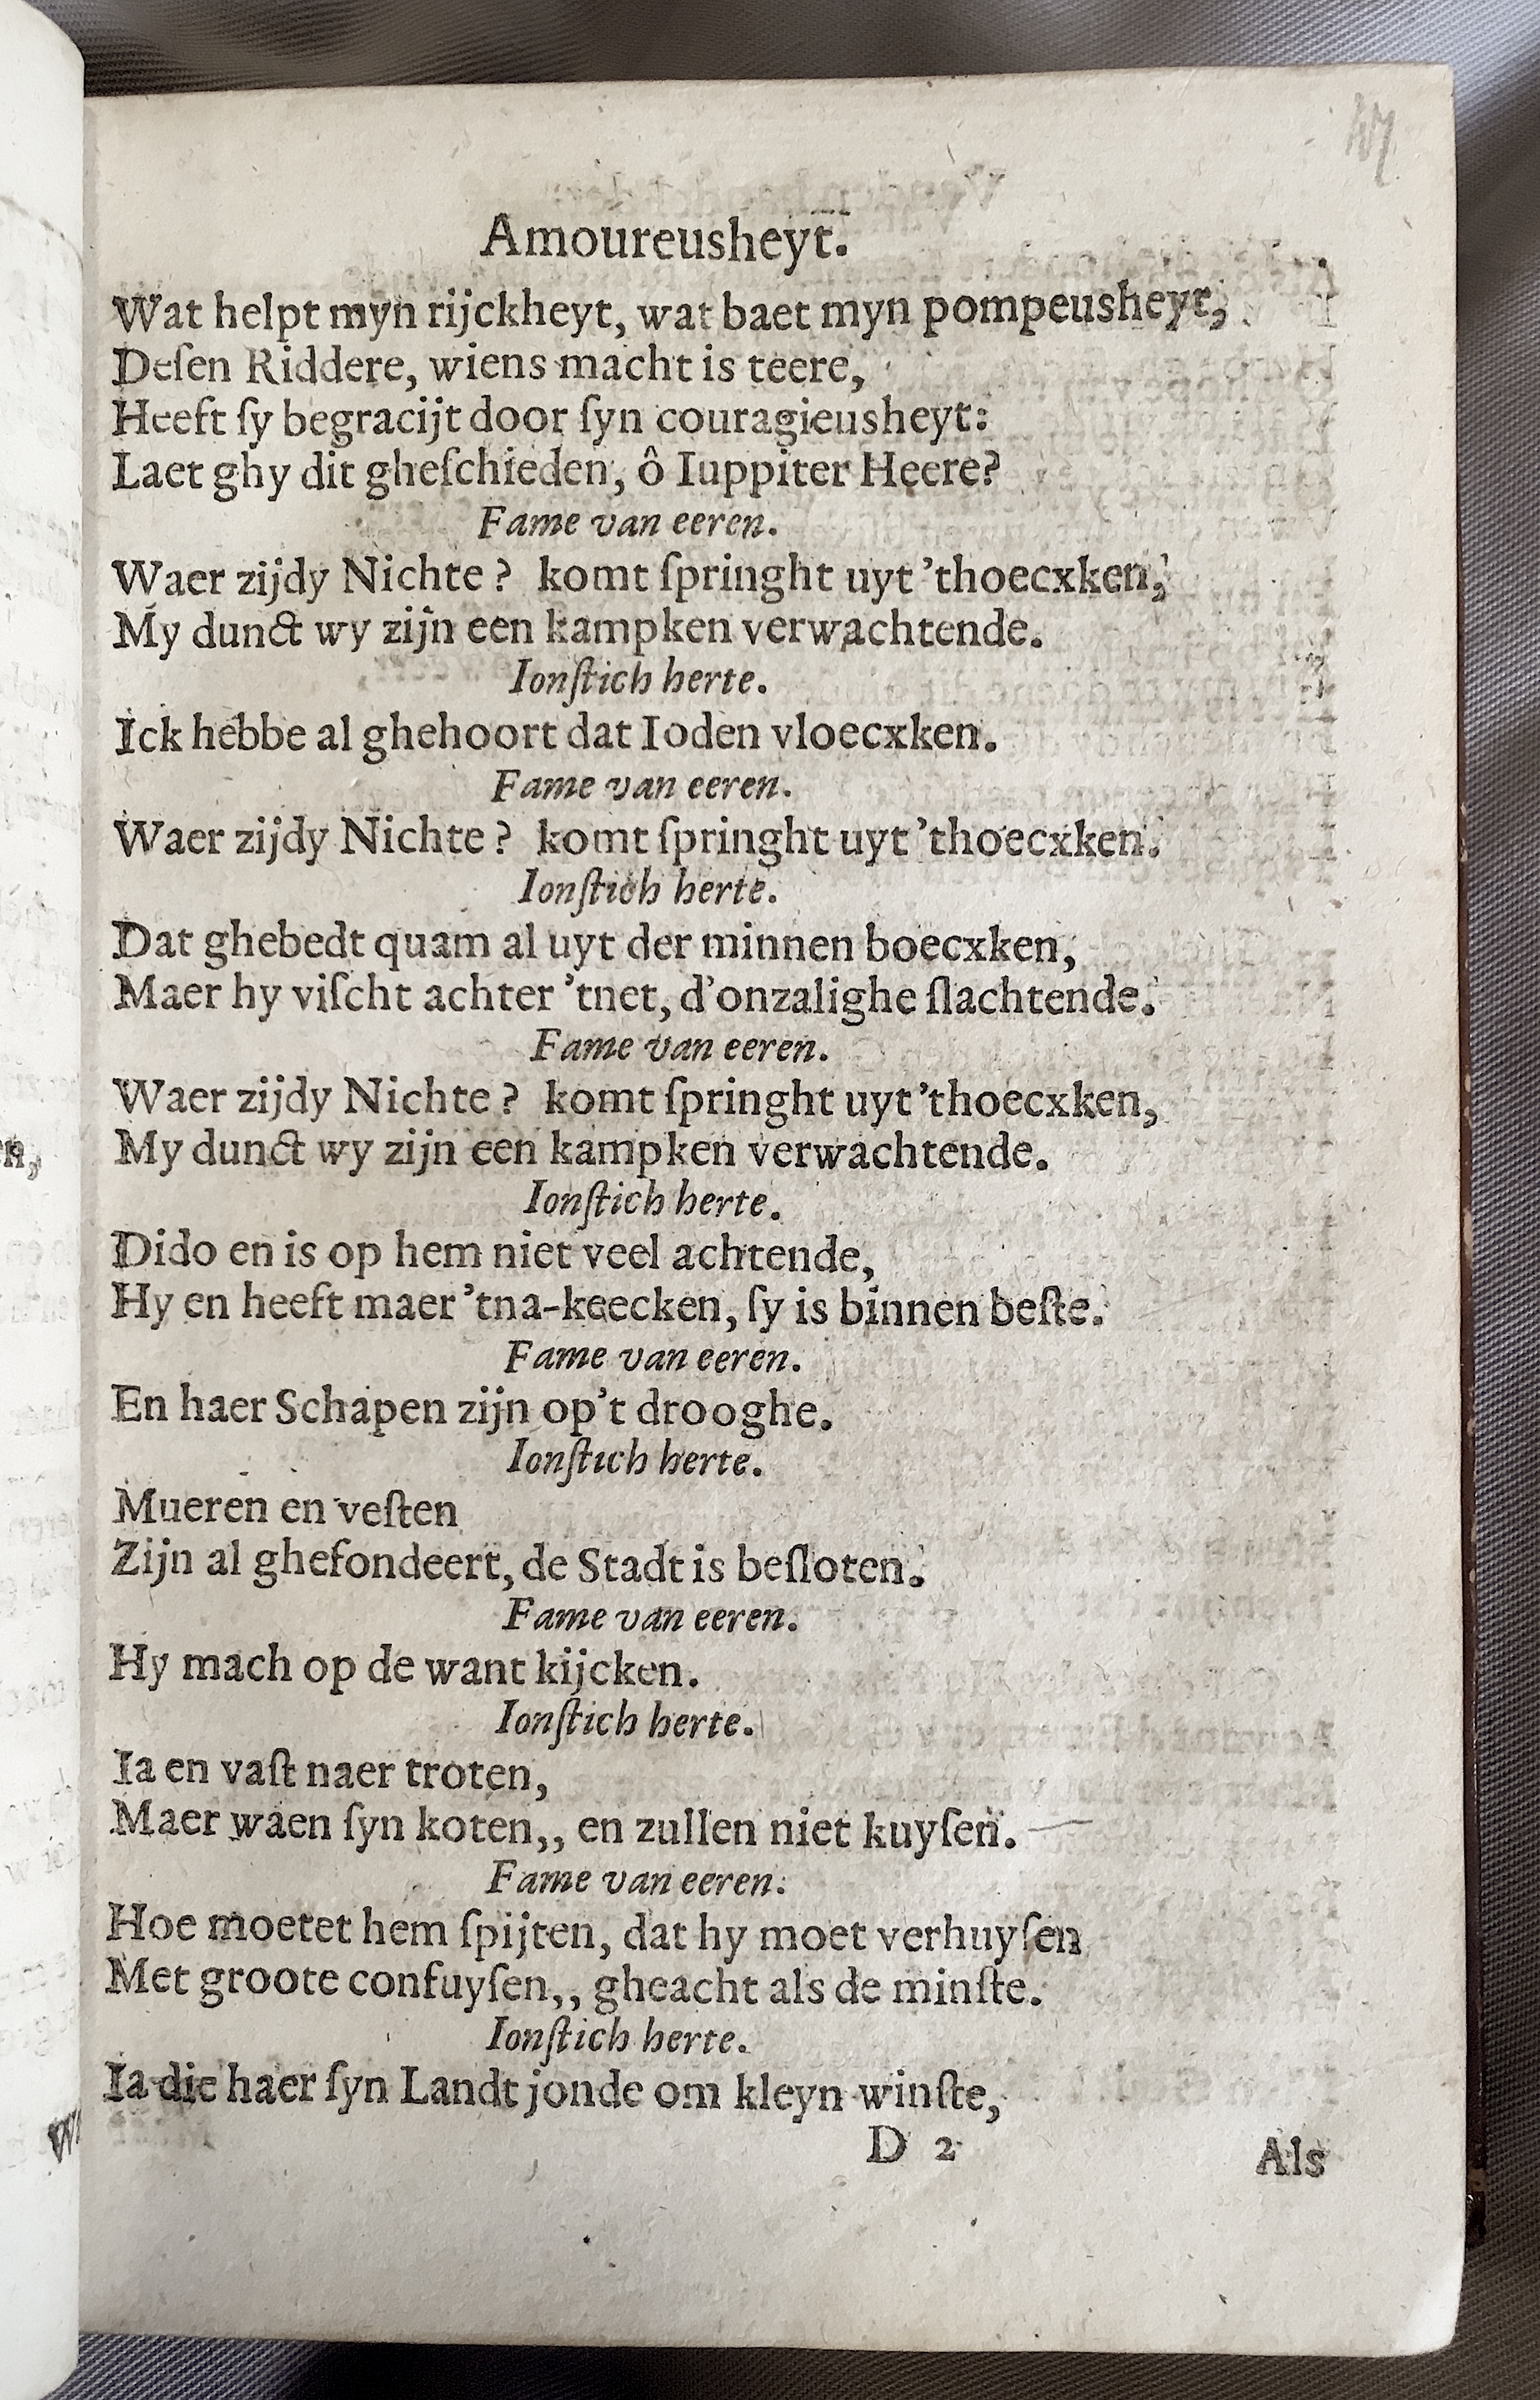 47
Amoureusheyt.
Wat helpt myn rijckheyt, wat baet myn pompeusheyt,
Deſen Riddere, wiens macht is teere,
Heeft ſy begracijt door ſyn couragieusheyt:
Laet ghy dit gheſchieden, ô Iuppiter Heere?
Fame van eeren.
Waer zijdy Nichte? komt ſpringht uyt 'thoecxken,
My dunct wy zijn een kampken verwachtende.
Ionſtich herte.
Ick hebbe al ghehoort dat Ioden vloecxken.
Fame van eeren.
Waer zijdy Nichte? komt ſpringht uyt 'thoecxken.
Ionſtich herte.
Dat ghebedt quam al uyt der minnen boecxken,
Maer hy viſcht achter 'tnet, d'onzalighe ſlachtende.
Fame van eeren.
Waer zijdy Nichte? komt ſpringht uyt 'thoecxken,
My dunct wy zijn een kampken verwachtende.
Ionſtich herte.
Dido en is op hem niet veel achtende,
Hy en heeft maer 'tna-keecken, ſy is binnen beſte.
Fame van eeren.
En haer Schapen zijn op't drooghe.
Ionſtich herte.
Mueren en veſten
Zijn al ghefondeert, de Stadt is beſloten.
Fame van eeren.
Hy mach op de want kijcken.
Ionſtich herte.
Ia en vaſt naer troten,
Maer waen ſyn koten,, en zullen niet kuyſen.
Fame van eeren.
Hoe moetet hem ſpijten, dat hy moet verhuyſen
Met groote confuyſen,, gheacht als de minſte.
Ionſtich herte.
Ia die haer ſyn Landt jonde om kleyn winſte,
D 2
Als